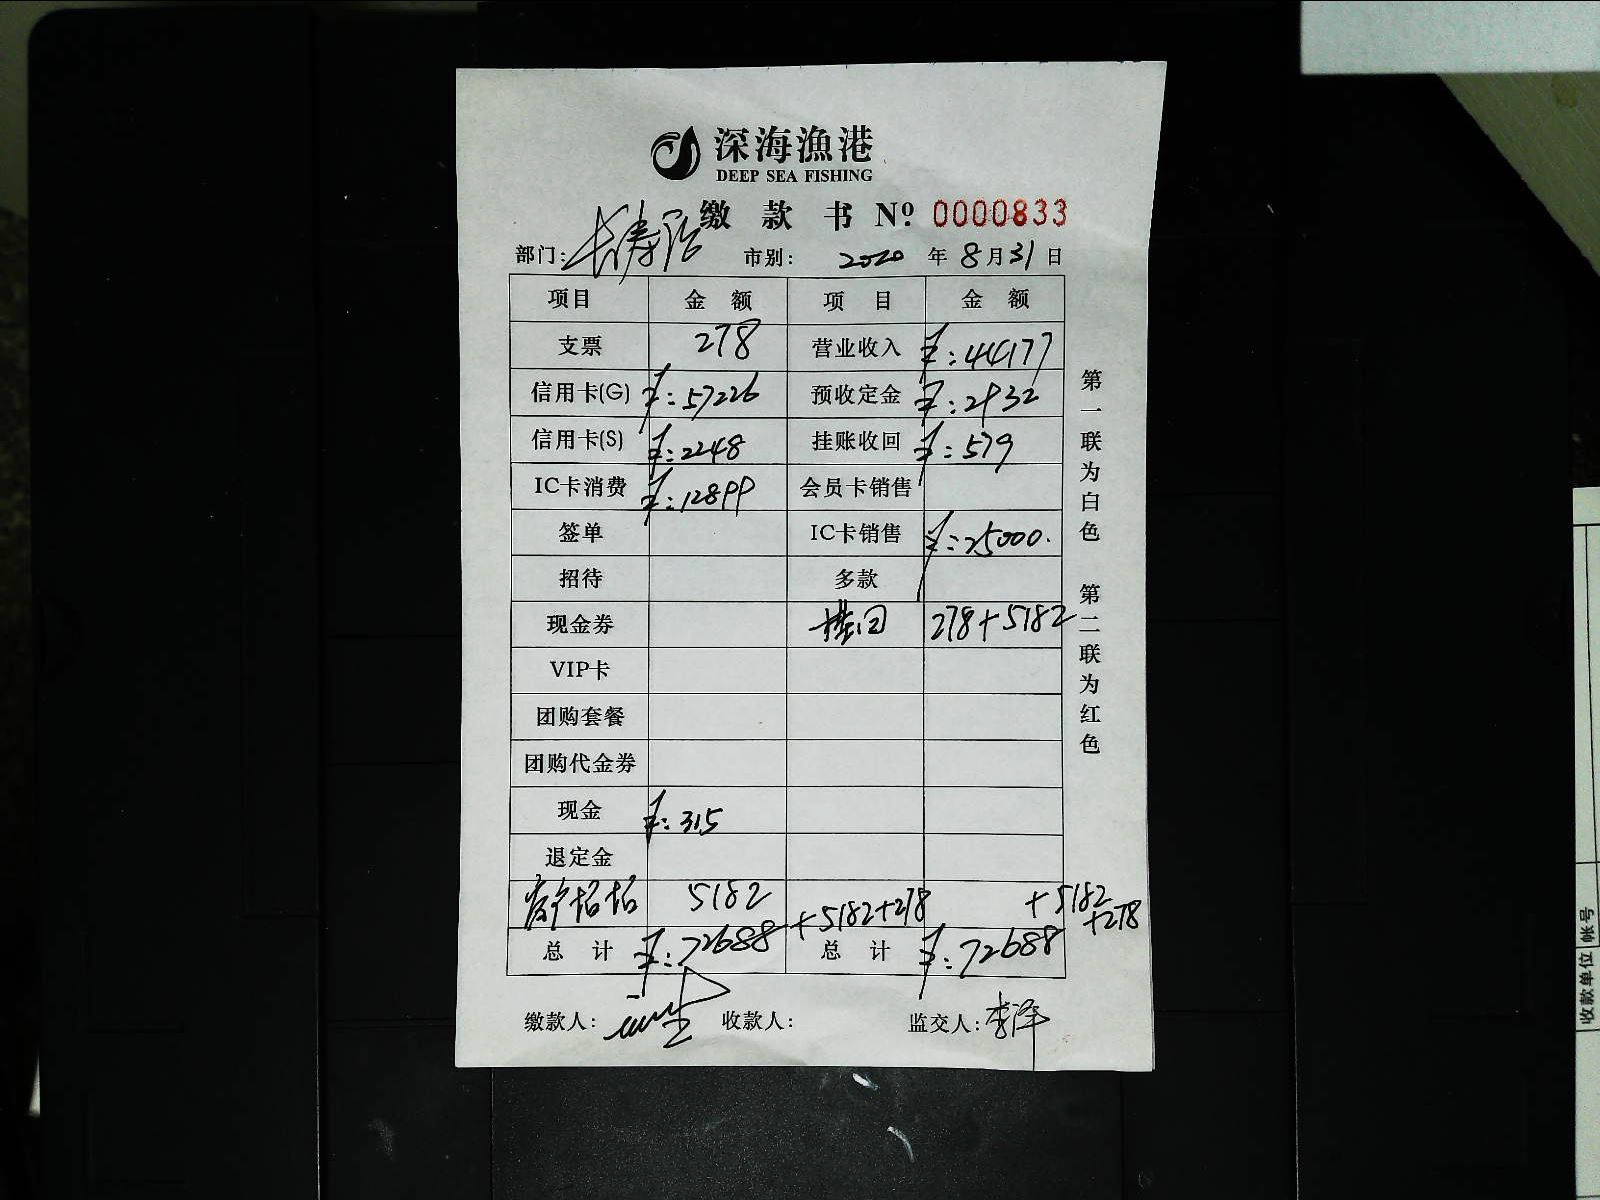 深海漁港
DEEP SEA FISHING
缴款书 Nº 0000833
部门: 长寿路 市别: 2020 年 8 月 31 日
项目 金额 项目 金额
支票 278 营业收入 ¥:44177
信用卡(G) ¥:57226 预收定金 ¥:2932
信用卡(S) ¥:2248 挂账收回 ¥:579
IC卡消费 ¥:12899 会员卡销售
签单 IC卡销售 ¥:25000.
招待 多款
现金券 挂回 278+5182
VIP卡
团购套餐
团购代金券
现金 ¥:315
退定金
5182 +5182+278 +5182+278
总计 ¥:72688 总计 ¥:72688
缴款人: 收款人: 监交人: 李泽
第一联为白色 第二联为红色
收款单位 帐号